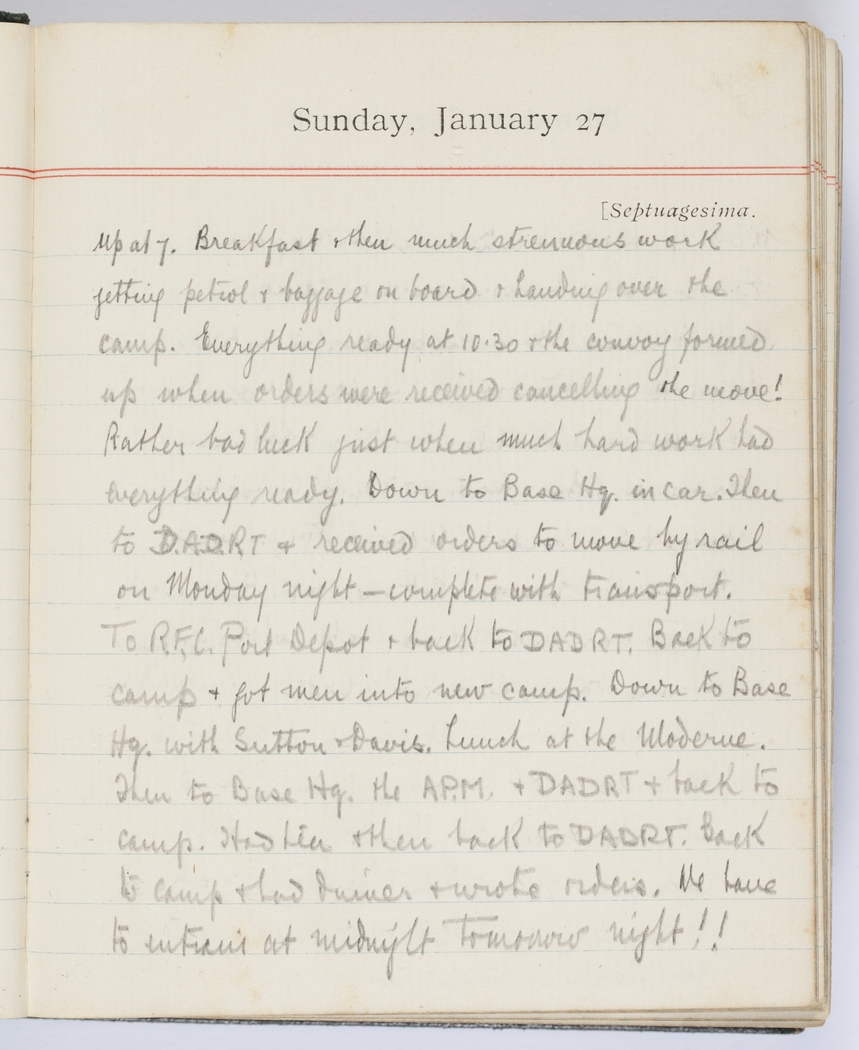 Sunday, January 27
[Septuagesima.
Up at 7. Breakfast & then much strenuous work
getting petrol & baggage on board & handing over the
camp. Everything ready at 10.30 & the convoy formed
up when orders were received cancelling the move!
Rather bad luck just when much hard work had
everything ready. Down to Base Hq. in car. Then
to D.A.D.R.T & received orders to move by rail
on Monday night – complete with transport.
To R.F.C. Port Depot & back to DADRT. Back to
camp & got men into new camp. Down to Base
Hq. with Sutton & Davis. Lunch at the Moderne.
Then to Base Hq. the A.P.M. & DADRT & back to
camp. Had tea & then back to DADRT. Back
to camp & had dinner & wrote orders. We have
to entrain at midnight tomorrow night!!